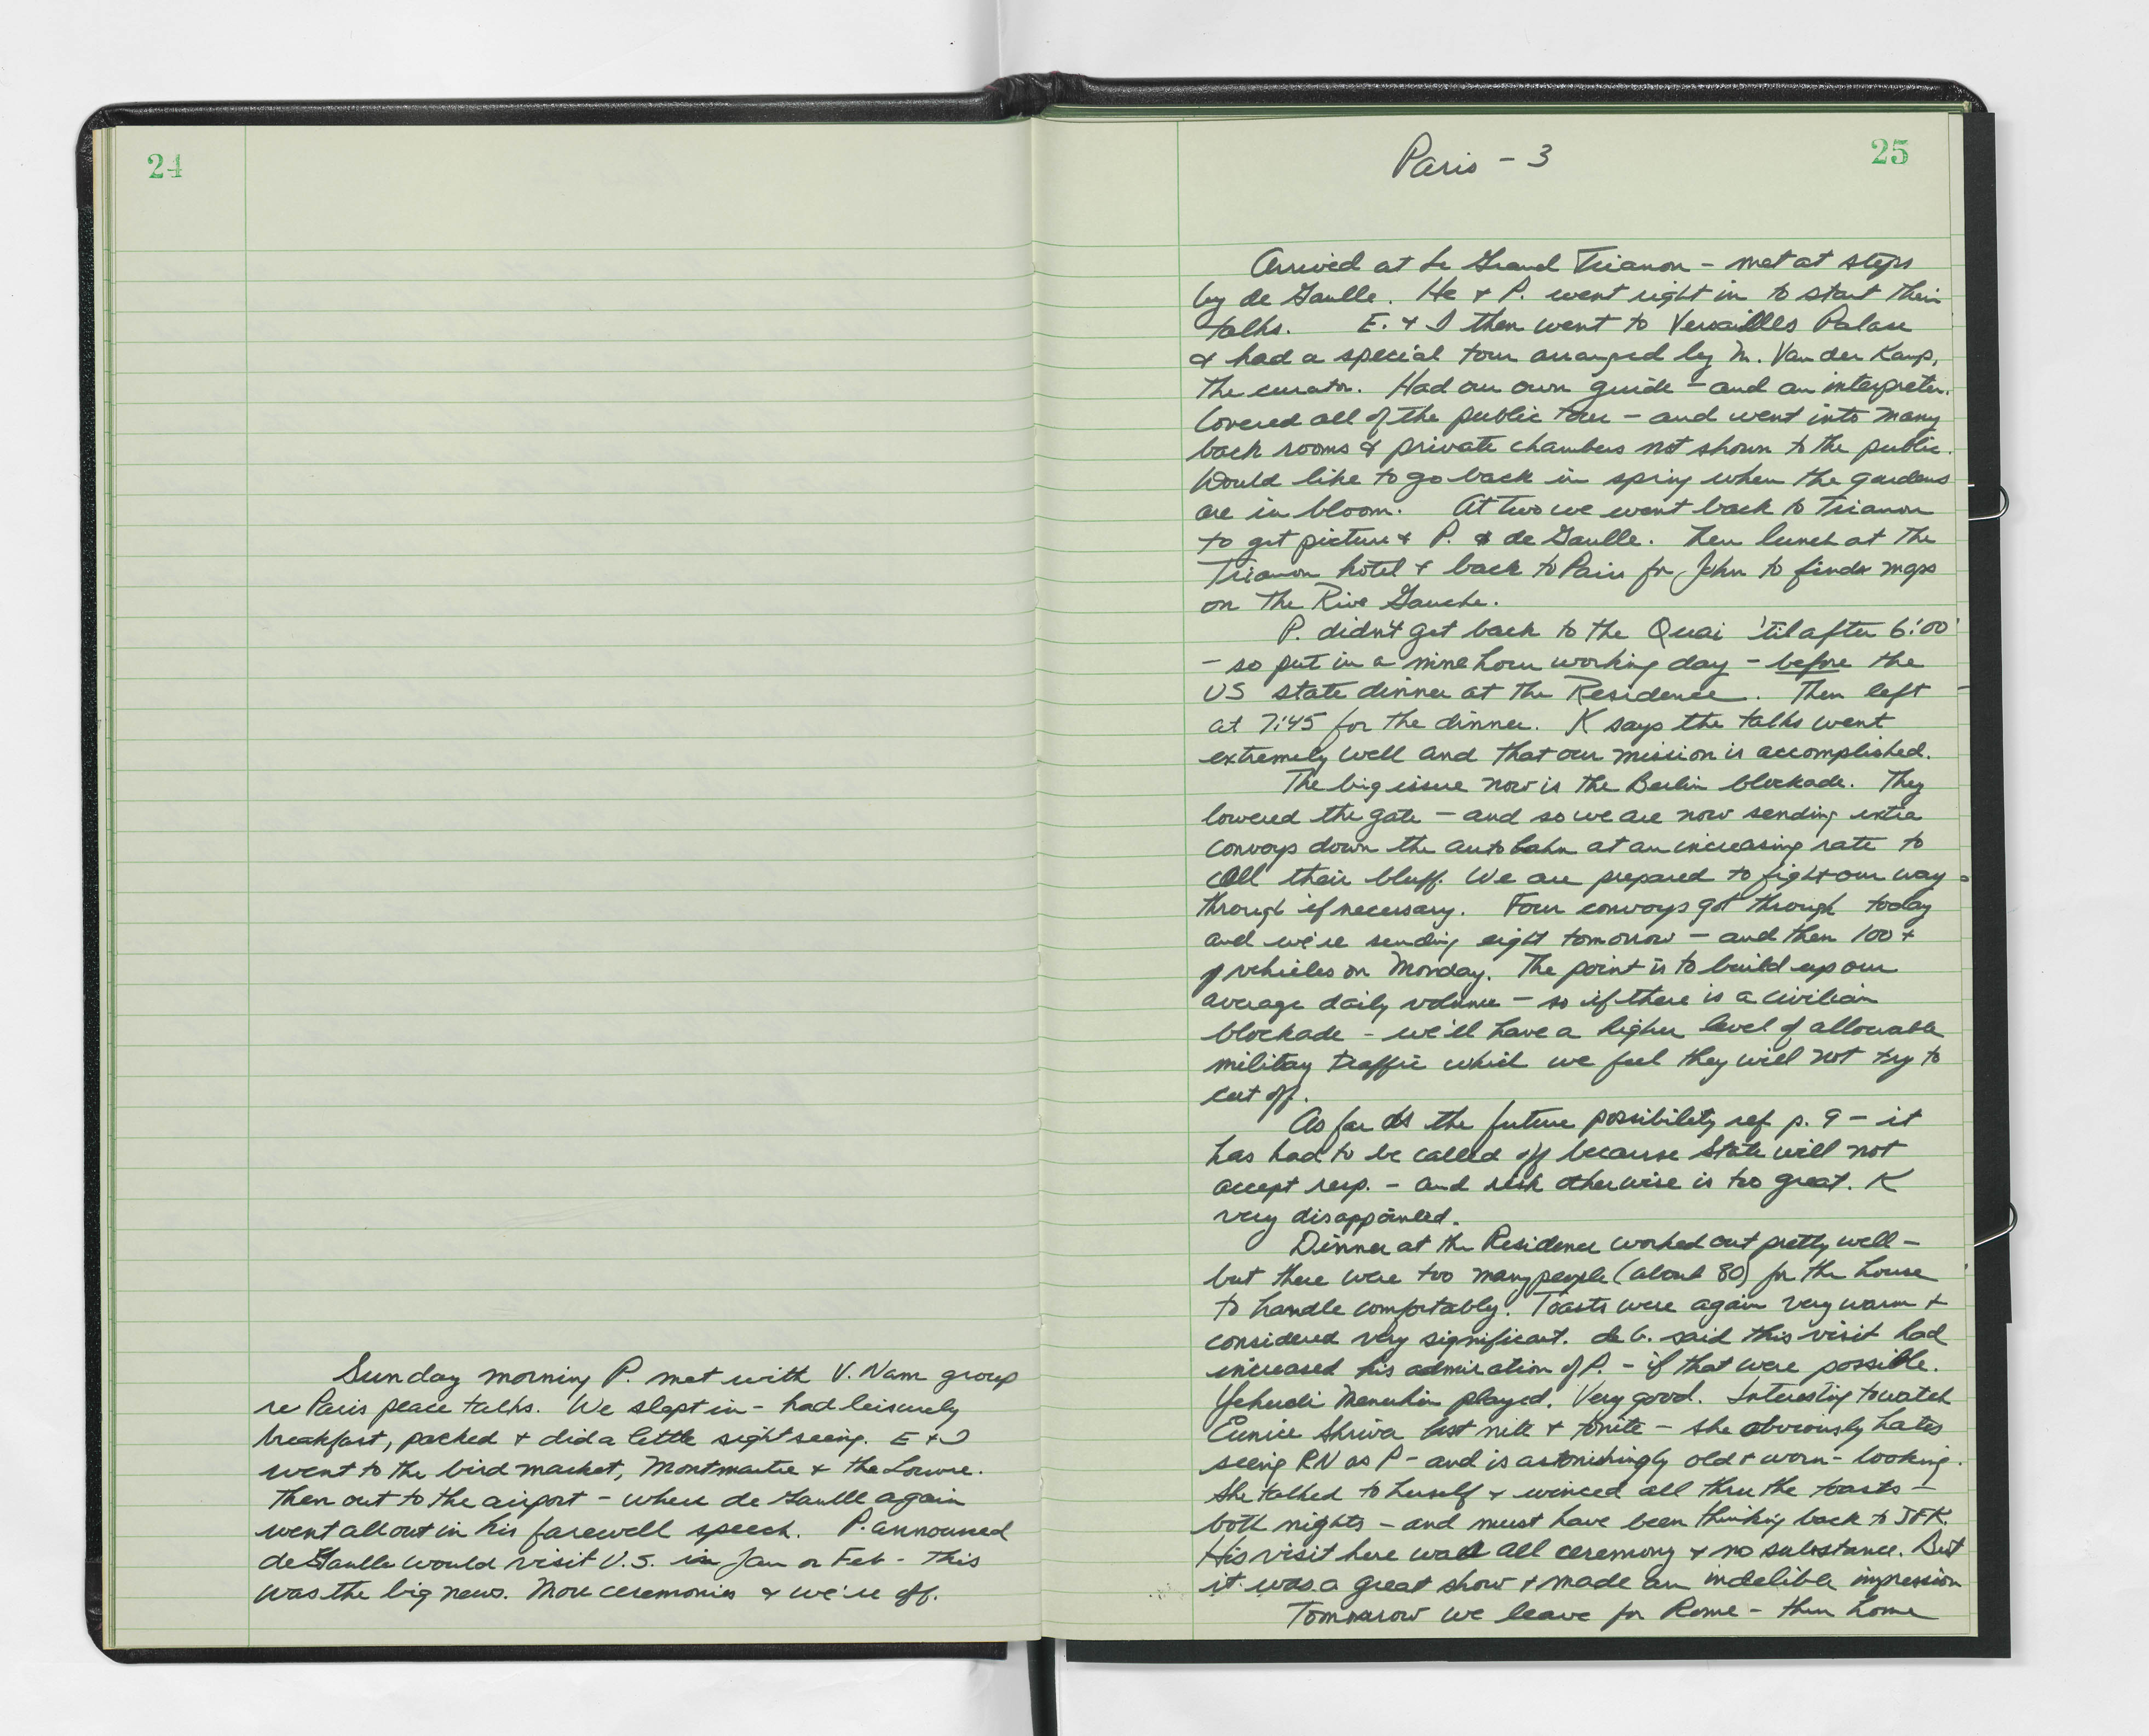 24
Sunday morning P. met with V. Nam group
re Paris peace talks. We slept in - had leisurely
breakfast, packed & did a little sight seeing. E & I
went to the bird market, Montmartre & the Louvre.
Then out to the airport - where de Gaulle again
went all out in his farewell speech. P. announced
de Gaulle would visit U.S. in Jan or Feb - This
was the big news. More ceremonies & we're off.
Paris - 3
25
Arrived at Le Grand Trianon - met at steps
by de Gaulle. He & P. went right in to start their
talks. E. & I then went to Versailles Palace
& had a special tour arranged by M. Van der Kamp,
the curator. Had our own guide - and an interpreter.
Covered all of the public tour - and went into many
back rooms & private chambers not shown to the public.
Would like to go back in spring when the gardens
are in bloom. At two we went back to Trianon
to get picture & P. & de Gaulle. Then lunch at the
Trianon hotel & back to Paris for John to find maps
on the Rive Gauche.
P. didn't get back to the Quai 'til after 6:00
- so put in a nine hour working day - before the
US state dinner at the Residence. Then left
at 7:45 for the dinner. K says the talks went
extremely well and that our mission is accomplished.
The big issue now is the Berlin blockade. They
lowered the gate - and so we are now sending extra
convoys down the autobahn at an increasing rate to
call their bluff. We are prepared to fight our way
through if necessary. Four convoys got through today
and we're sending eight tomorrow - and then 100+
vehicles on Monday. The point is to build up our
average daily volume - so if there is a civilian
blockade - we'll have a higher level of allowable
military traffic which we feel they will not try to
cut off.
As far as the future possibility ref p. 9 - it
has had to be called off because State will not
accept resp. - and risk otherwise is too great. K
very disappointed.
Dinner at the Residence worked out pretty well -
but there were too many people (about 80) for the house
to handle comfortably. Toasts were again very warm &
considered very significant. de G. said this visit had
increased his admiration of P. - if that were possible.
Yehudi Menuhin played. Very good. Interesting to watch
Eunice Shriver last nite & tonite - she obviously hates
seeing RN as P - and is astonishingly old & worn-looking.
She talked to herself & winced all thru the toasts -
both nights - and must have been thinking back to JFK.
His visit here was all ceremony & no substance. But
it was a great show & made an indelible impression
Tomorrow we leave for Rome - then home